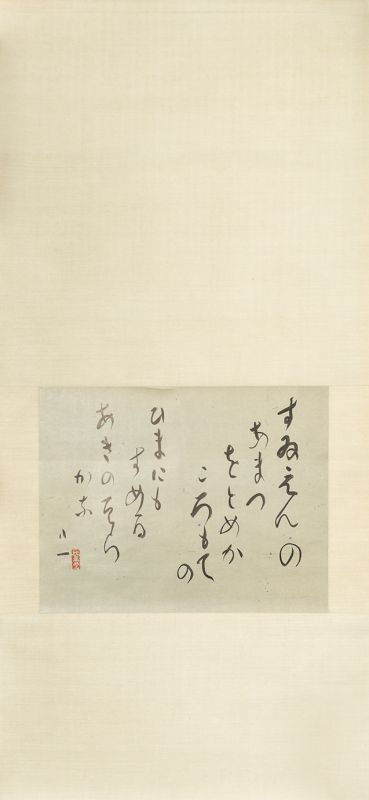 すゐえんの
あまつ
をとめか
ころもて
の
ひまにも
すめる
あきのそら
かな
八一